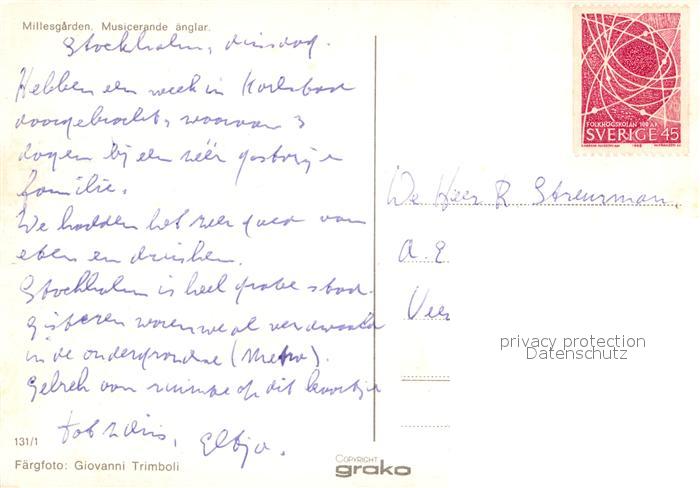 Millesgården. Musicerande änglar.
Stockholm, dinsdag.
Hebben een week in Karlstad
doorgebracht, waarvan 3
dagen bij een zéér gastvrije
familie.
We hadden het zeer goed van
eten en drinken.
Stockholm is heel grote stad.
Gisteren waren we al verdwaald
in de ondergrondse (Metro).
Gebrek aan ruimte op dit kaartje
tot ziens,
131/1
Färgfoto: Giovanni Trimboli
COPYRIGHT
grako
FOLKHÖGSKOLAN 100 ÅR
SVERIGE 45
1968
De Heer R Streurman
A. E
Veer
privacy protection
Datenschutz